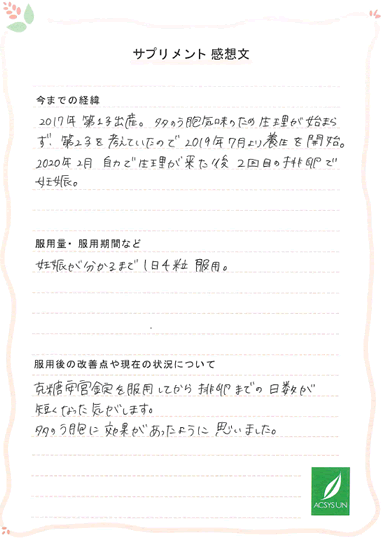 サプリメント 感想文
今までの経緯
2017年 第1子出産。 多のう胞気味のため 生理が始まら
ず、第2子を考えていたので 2019年7月より養生を開始。
2020年2月 自力で生理が来た後 2回目の排卵で
妊娠。
服用量・服用期間など
妊娠が分かるまで 1日4粒 服用。
服用後の改善点や現在の状況について
克糖宇宮錠を服用してから 排卵までの日数が
短くなった気がします。
多のう胞に効果があったように思いました。
ACSYS UN